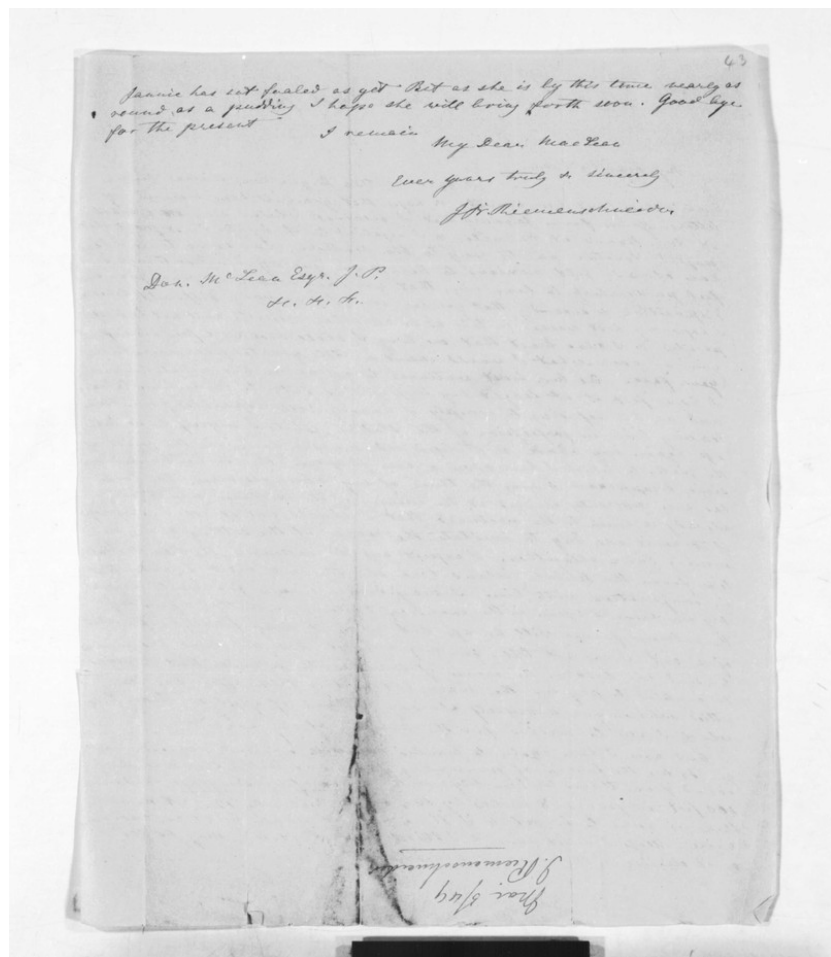 43
Fannie has not foaled as yet But as she is by this time nearly as
round as a pudding I hope she will bring forth soon. Good bye
for the present
I remain
My Dear MacLean
Ever yours truly & sincerely
Riemenschneider
Don. McLean Esqr. J. P.
&. &. &.
J. Riemenschneider
5/49